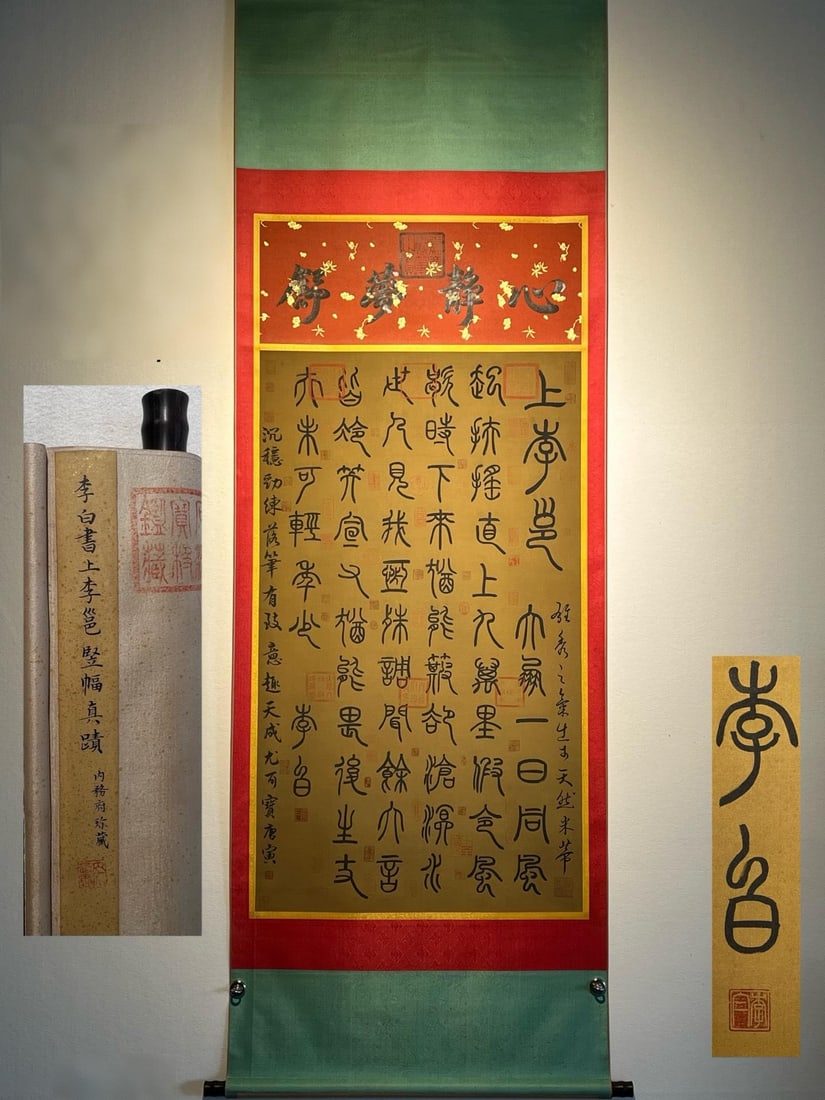 心靜夢舒
雄秀之氣生於天然米芾
上李邕 大鵬一日同風
起扶搖直上九萬里假令風
歇時下來猶能簸卻滄溟水
世人見我恆殊調聞餘大言
皆冷笑宣父猶能畏後生丈
夫未可輕年少 李白
沉穩勁練落筆有致意趣天成尤可寶唐寅
李白書上李邕竪幅真蹟
內務府珍藏
李白